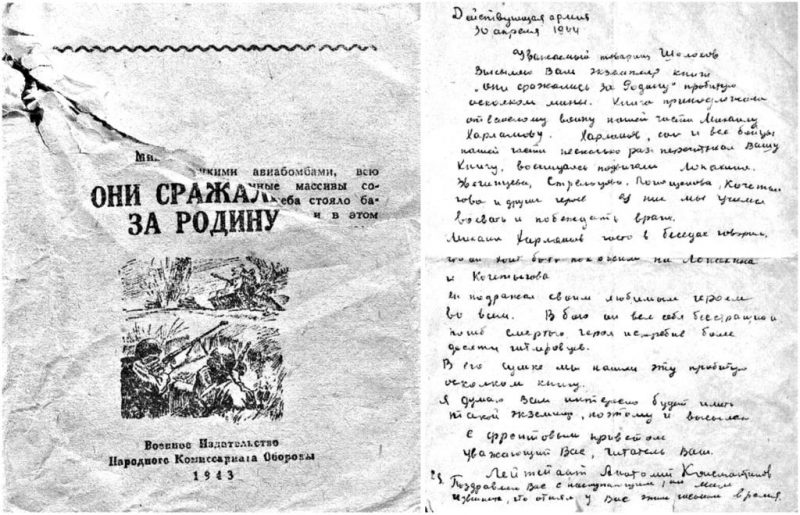 Ми
кими авиабомбами, всю
ные массивы со-
ОНИ СРАЖАЛ
еба стояло ба-
ЗА РОДИНУ
и в этом
Военное Издательство
Народного Комиссариата Обороны
1943
Действующая армия
30 апреля 1944
Уважаемый товарищ Шолохов
Высылаю Вам экземпляр книги
„Они сражались за Родину" пробитую
осколком мины. Книга принадлежала
отважному воину нашей части Михаилу
Харламову. Харламов, сам и все бойцы
нашей части несколько раз перечитал Вашу
Книгу, восхищаясь подвигами Лопахина,
Звягинцева, Стрельцова, Поприщенко, Кочеты-
гова и других героев У них мы учимся
воевать и побеждать врага.
Михаил Харламов часто в беседах говорил,
что он хочет быть похожим на Лопахина
и Кочетыгова
Он подражал своим любимым героям
во всем. В бою он вел себя бесстрашно и
погиб смертью героя истребив более
десяти гитлеровцев.
В его сумке мы нашли эту пробитую
осколком книгу.
Я думаю Вам интересно будет иметь
такой экземпляр, поэтому и высылаю
С фронтовым приветом
уважающий Вас, читатель Ваш.
Лейтенант Анатолий Константинов
Поздравляю Вас с наступающим, 1ым мая
Извините, что отнял у Вас этим письмом время.